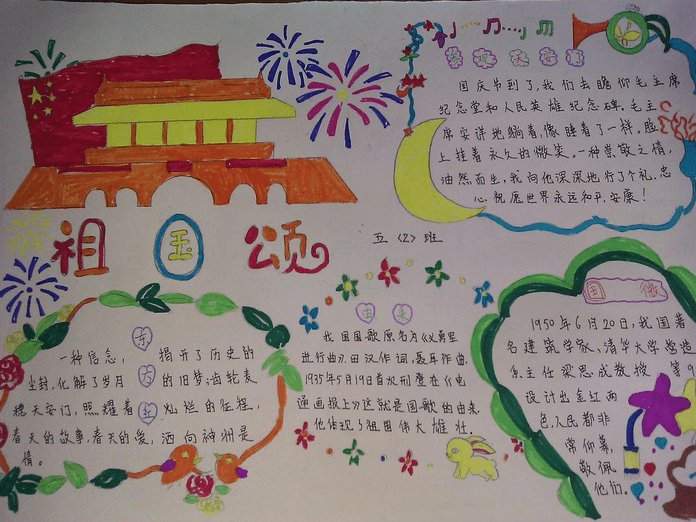 祖国颂
五〈2〉班
参观天安门
国庆节到了,我们去瞻仰毛主席
纪念堂和人民英雄纪念碑。毛主
席安详地躺着,像睡着了一样。脸
上挂着永久的微笑。一种崇敬之情,
油然而生,我向他深深地行了个礼,忠
心祝愿世界永远和平,安康!
东方红
一种信念, 揭开了历史的
尘封,化解了岁月 的旧梦;齿轮麦
穗天安门,照耀着 灿烂的征程,
春天的故事,春天的爱,洒向神洲是
情。
国歌
我国国歌原名为《义勇军
进行曲》,田汉作词,聂耳作曲,
1935年5月19日首次刊登在《电
通画报上》这就是国歌的由来,
他体现了祖国伟大雄壮。
国徽
1950年6月20日,我国著
名建筑学家、清华大学营造
系主任梁思成教授 第9
设计出金红两
色,人民都非
常仰慕,
敬佩
他们。